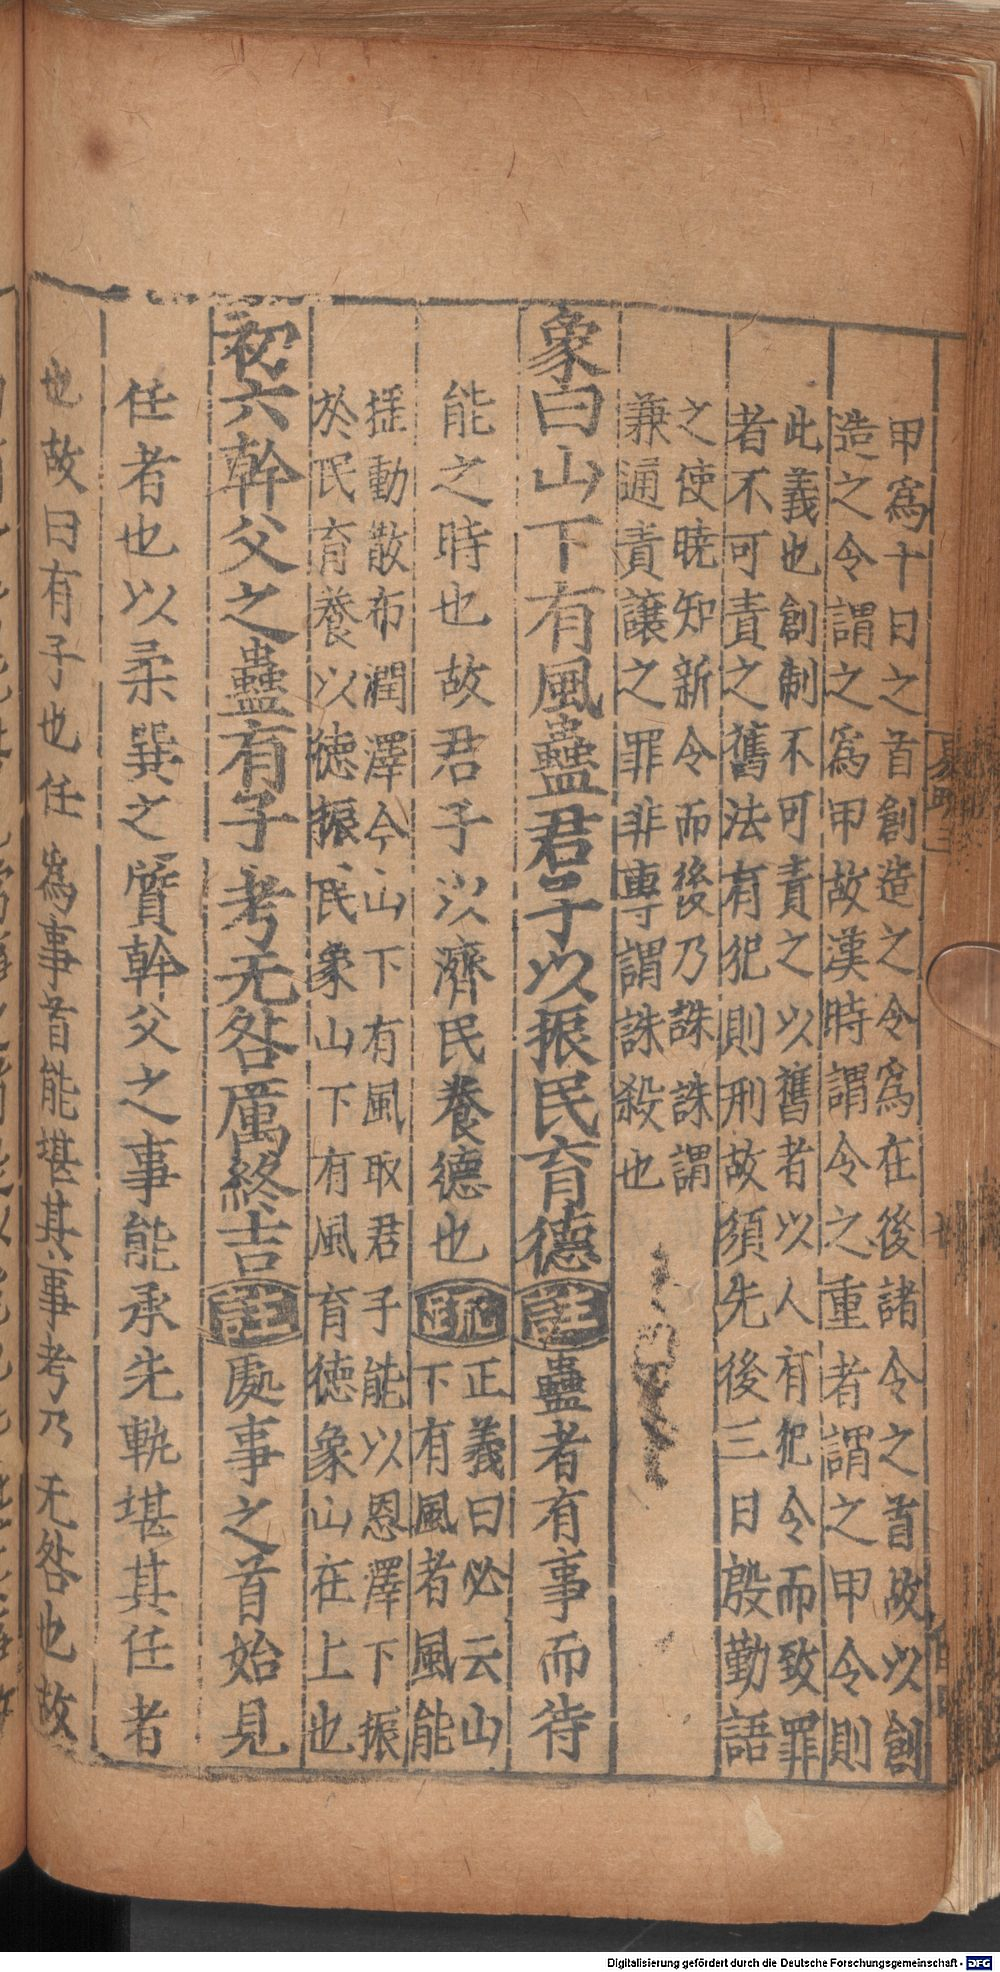 甲爲十日之首創造之令爲在後諸令之首故以創
造之令謂之爲甲故漢時謂令之重者謂之甲令則
此義也創制不可責之以舊者以人有犯令而致罪
者不可責之舊法有犯則刑故須先後三日殷勤語
之使曉知新令而後乃誅誅謂
兼通責讓之罪非專謂誅殺也
象曰山下有風蠱君子以振民育德註蠱者有事而待
能之時也故君子以濟民養德也疏正義曰必云山
下有風者風能
揺動散布潤澤今山下有風取君子能以恩澤下振
於民育養以徳振民象山下有風育徳象山在上也
初六幹父之蠱有子考无咎厲終吉註處事之首始見
任者也以柔巽之質幹父之事能承先軌堪其任者
也故曰有子也任爲事首能堪其事考乃无咎也故
Digitalisierung gefördert durch die Deutsche Forschungsgemeinschaft - DFG